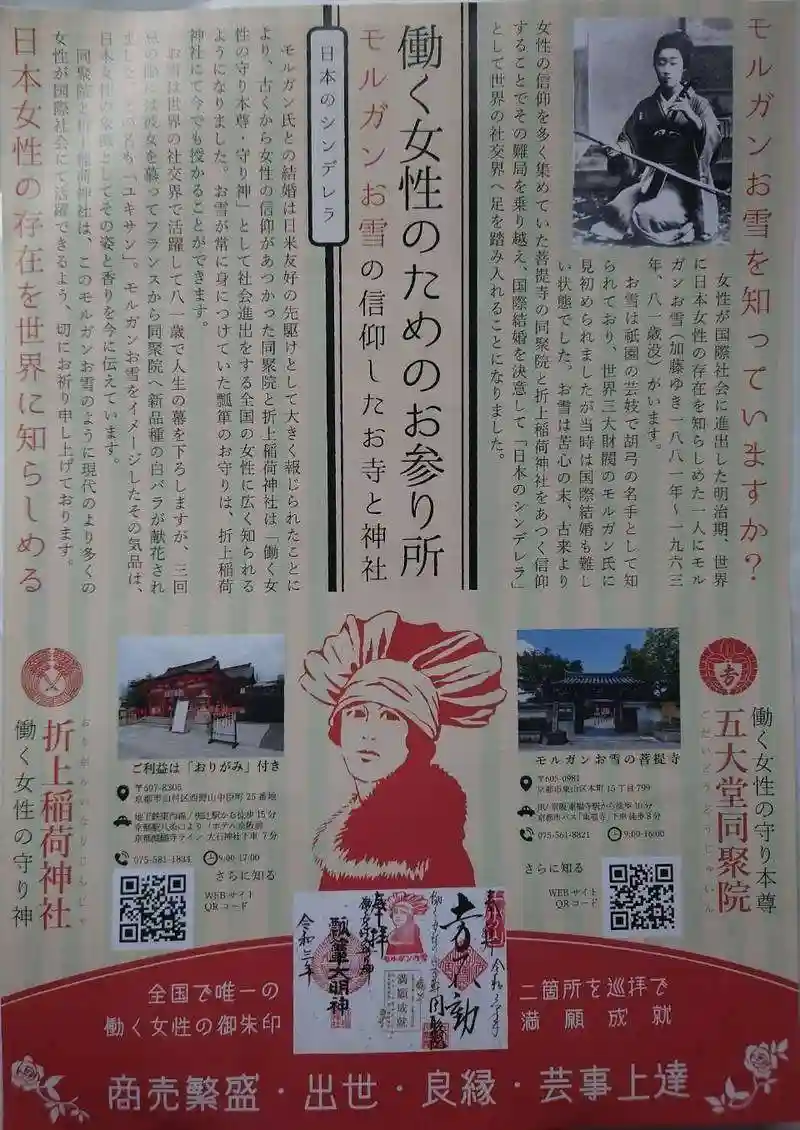 モルガンお雪を知っていますか？
女性が国際社会に進出した明治期、世界
に日本女性の存在を知らしめた一人にモル
ガンお雪（加藤ゆき一八八一年～一九六三
年、八一歳没）がいます。
お雪は祇園の芸妓で胡弓の名手として知
られており、世界三大財閥のモルガン氏に
見初められましたが当時は国際結婚も難し
い状態でした。お雪は苦心の末、古来より
女性の信仰を多く集めていた菩提寺の同聚院と折上稲荷神社をあつく信仰
することでその難局を乗り越え、国際結婚を決意して「日本のシンデレラ」
として世界の社交界へ足を踏み入れることになりました。
働く女性のためのお参り所
モルガンお雪の信仰したお寺と神社
日本のシンデレラ
モルガン氏との結婚は日米友好の先駆けとして大きく報じられたことに
より、古くから女性の信仰があつかった同聚院と折上稲荷神社は「働く女
性の守り本尊・守り神」として社会進出をする全国の女性に広く知られる
ようになりました。お雪が常に身につけていた瓢箪のお守りは、折上稲荷
神社にて今でも授かることができます。
お雪は世界の社交界で活躍して八一歳で人生の幕を下ろしますが、三回
忌の際には彼女を慕ってフランスから同聚院へ新品種の白バラが献花され
ました。その名も「ユキサン」。モルガンお雪をイメージしたその気品は、
日本女性の象徴としてその姿と香りを今に伝えています。
同聚院と折上稲荷神社は、このモルガンお雪のように現代のより多くの
女性が国際社会にて活躍できるよう、切にお祈り申し上げております。
日本女性の存在を世界に知らしめる
働く女性の守り本尊
五大堂同聚院
ごだいどうどうじゅいん
モルガンお雪の菩提寺
〒605-0981
京都市東山区本町15丁目799
JR/京阪東福寺駅から徒歩10分
京都市バス「東福寺」下車徒歩8分
075-561-8821
9:00-16:00
さらに知る
WEBサイト
QRコード
折上稲荷神社
おりがみいなりじんじゃ
働く女性の守り神
ご利益は「おりがみ」付き
〒607-8306
京都市山科区西野山中臣町25番地
地下鉄東西線/椥辻駅から徒歩15分
京都駅八条口より/ホテル京阪前
京都醍醐寺ライン 大石神社下車7分
075-581-1834
9:00-17:00
さらに知る
WEBサイト
QRコード
奉拝
モルガンお雪
満願成就
瓢箪大明神
令和三年
全国で唯一の
働く女性の御朱印
二箇所を巡拝で
満願成就
商売繁盛・出世・良縁・芸事上達